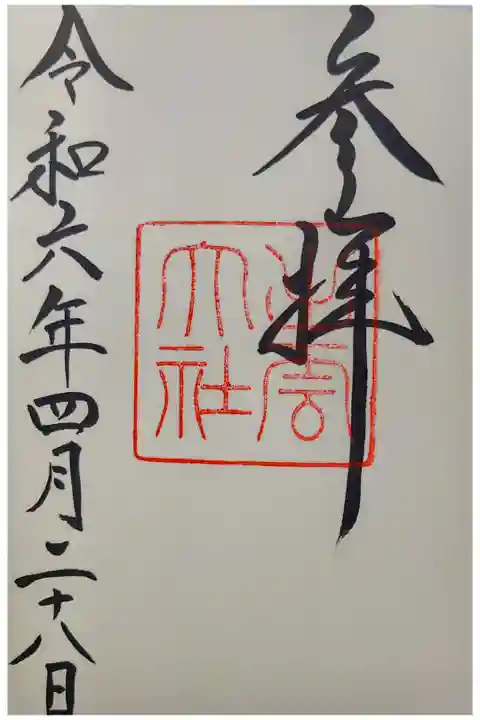 参拝
出雲
大社
令和六年四月二十八日